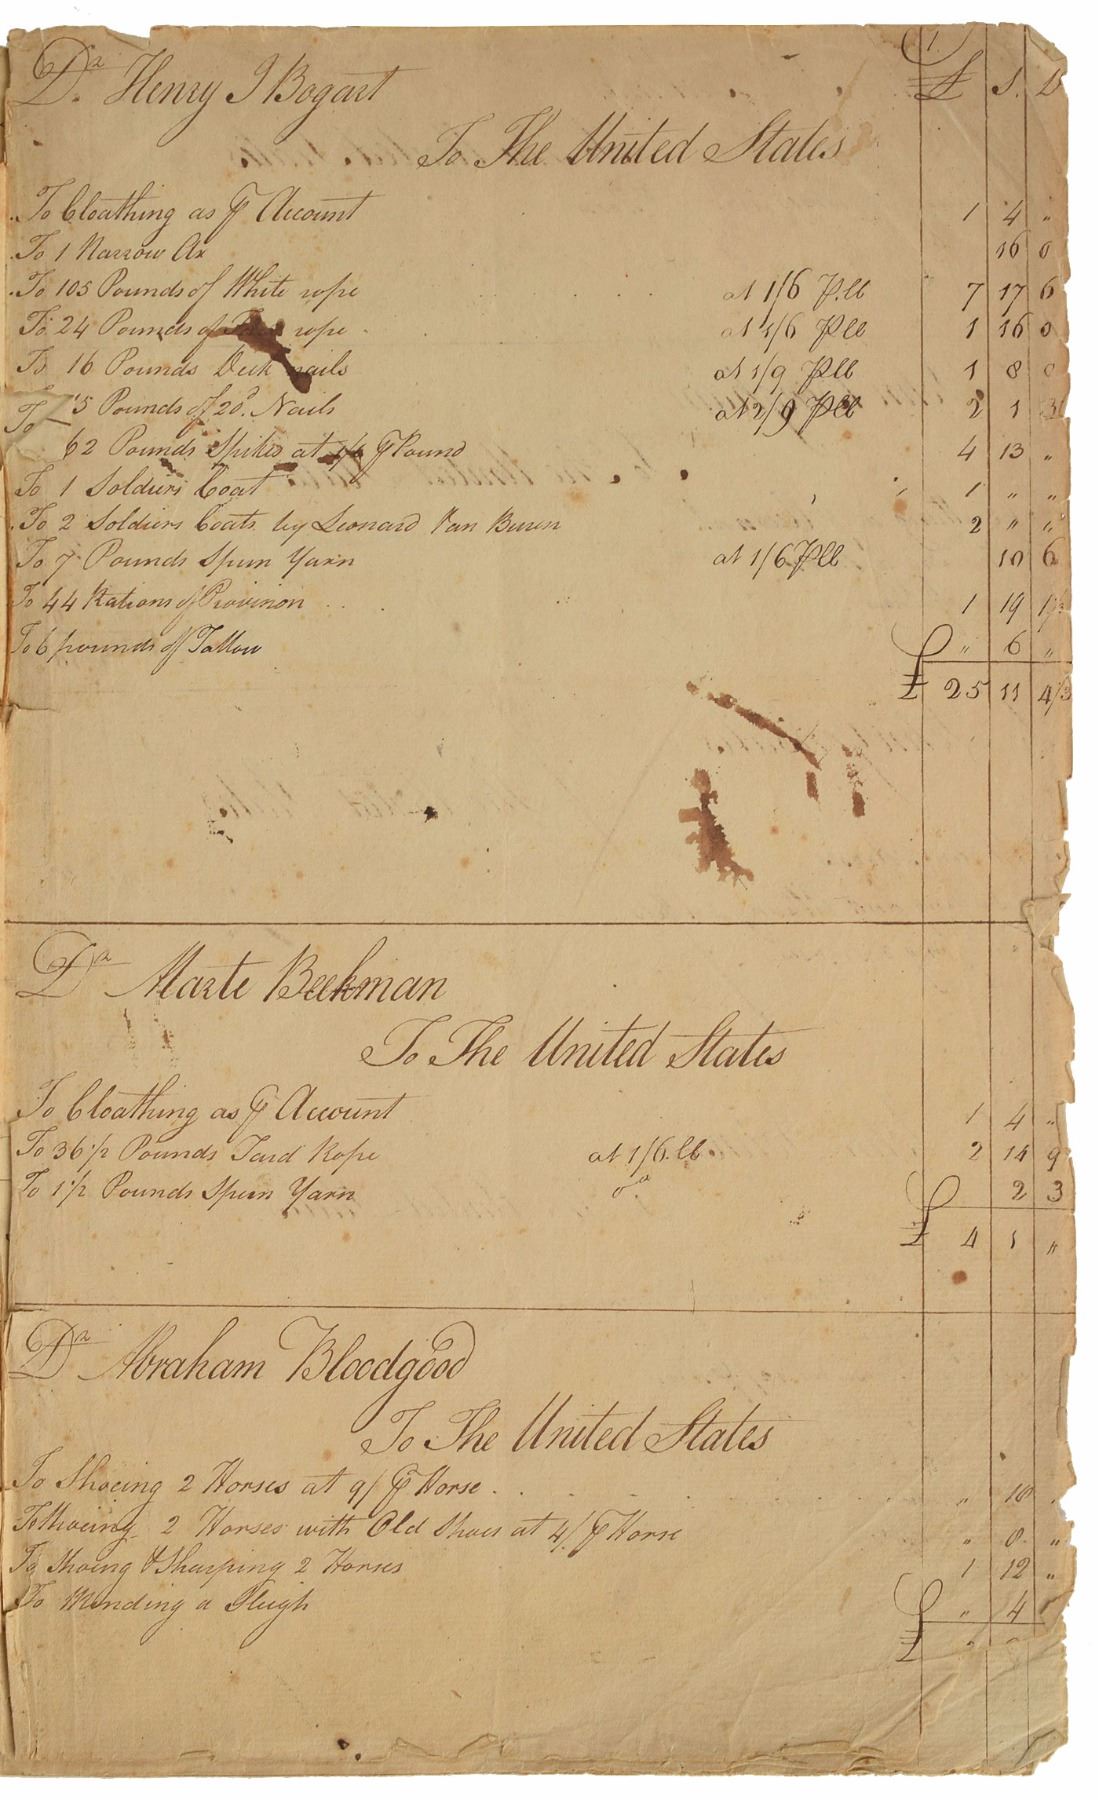 1.
Dr. Henry I Bogart £ S. D
To The United States
To Cloathing as ⅌ Account 1 4 "
To 1 Narrow Ax 16 0
To 105 Pounds of White rope at 1/6 P.lb 7 17 6
To 24 Pounds of rope at 1/6 P lb 1 16 0
To 16 Pounds Deck nails at 1/9 P lb 1 8 0
To 15 Pounds of 20d. Nails at 2/9 P lb 2 1 3
62 Pounds Spikes at 1/6 ⅌ Pound 4 13 "
To 1 Soldiers Coat 1 " "
To 2 Soldiers Coats by Leonard Van Buren 2 " "
To 7 Pounds Spun Yarn at 1/6 P lb 10 6
To 44 Rations of Provision 1 19
To 6 pounds of Tallow " 6 "
£ 25 11 4/3
Dr Marte Beekman
To The United States
To Cloathing as ⅌ Account 1 4 "
To 36 1/2 Pounds Tard Rope at 1/6. lb 2 14 9
To 1 1/2 Pounds Spun Yarn do. 2 3
£ 4 1 "
Dr Abraham Bloodgood
To The United States
To Shoeing 2 Horses at 9/ ⅌ Horse " 18
To Shoeing 2 Horses with Old Shoes at 4/ ⅌ Horse " 8 "
To Shoeing & Sharping 2 Horses 1 12 "
To Mending a Sleigh " 4
£